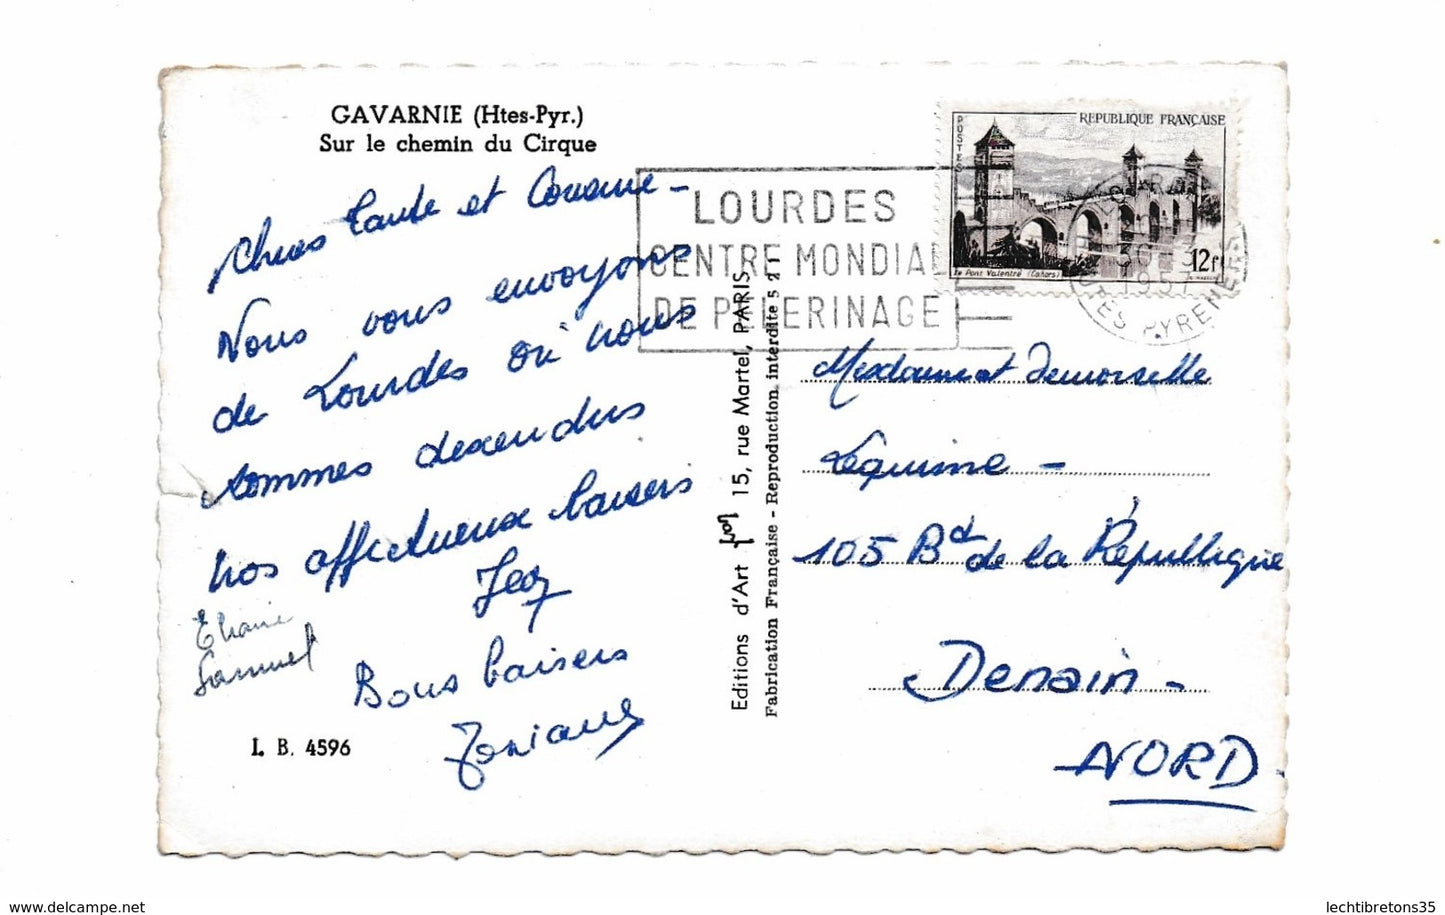 GAVARNIE (Htes-Pyr.)
Sur le chemin du Cirque
Chères Tante et Cousine -
Nous vous envoyons
de Lourdes où nous
sommes descendus
nos affectueux baisers
Bons baisers
Eliane
Samuel
I. B. 4596
Editions d'Art 15, rue Martel, PARIS
Fabrication Française - Reproduction interdite 521
LOURDES
CENTRE MONDIAL
DE PELERINAGE
POSTES
REPUBLIQUE FRANÇAISE
Le Pont Valentré (Cahors)
12f
1957
HAUTES PYRENEES
Mesdame et Demoiselle
Lequime -
105 Bd de la République
Denain -
NORD
delcampe.net
lechtibretons35